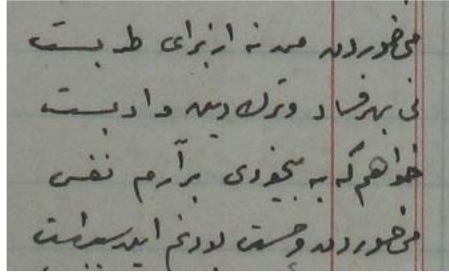 می خوردن من نه از برای طربست
نی بهر فساد و ترک دین و ادبست
خواهم که به بیخودی برآرم نفسی
می خوردن و مست بودنم این سببست